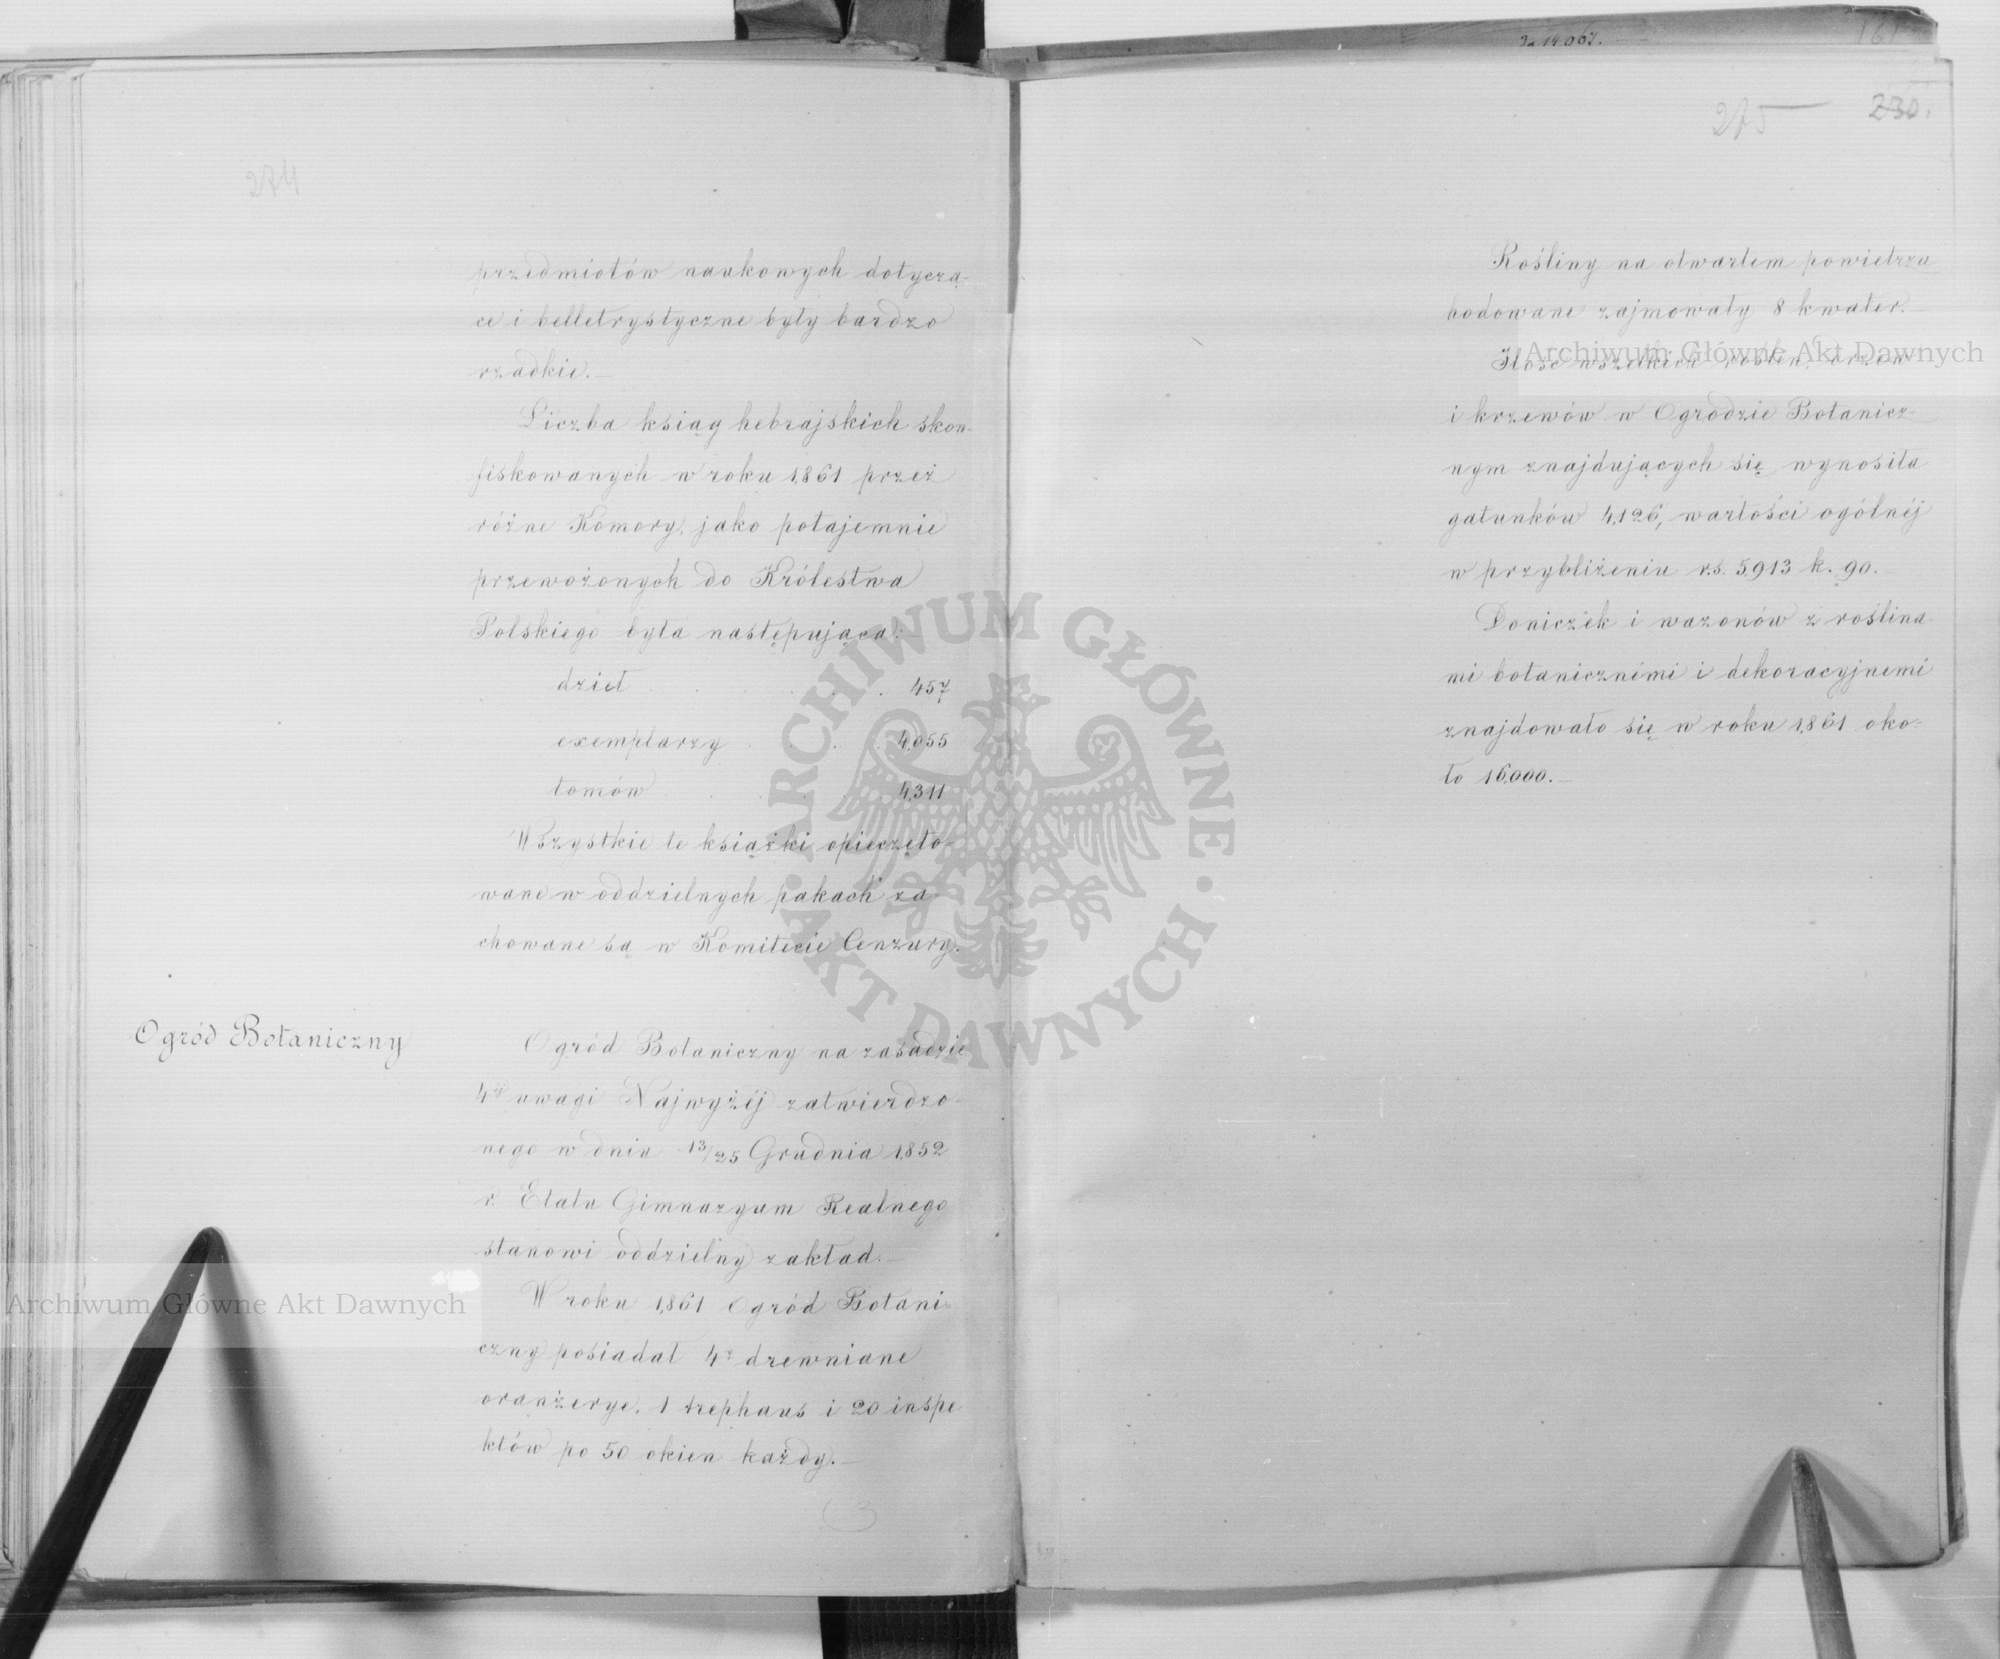 274
przedmiotów naukowych dotyczą-
ce i belletrystyczne były bardzo
rzadkie.—
Liczba ksiąg hebrajskich skon-
fiskowanych w roku 1861 przez
różne Komory, jako potajemnie
przewożonych do Królestwa
Polskiego była następująca:
dzieł . . . . . 457
exemplarzy . . . . 4,055
tomów . . . . 4,311
Wszystkie te książki opieczęto-
wane w oddzielnych pakach za-
chowane są w Komitecie Cenzury.
Ogród Botaniczny
Ogród Botaniczny na zasadzie
4ej uwagi Najwyżéj zatwierdzo-
nego w dniu 13/25 Grudnia 1852
r. Etatu Gimnazyum Realnego
stanowi oddzielny zakład.—
W roku 1861 Ogród Botani-
czny posiadał 4ry drewniane
oranżerye, 1 trephaus i 20 inspe-
któw po 50 okien każdy.—
275 230.
Rośliny na otwartem powietrzu
hodowane zajmowały 8 kwater.—
Ilość wszelkich roślin, drzew
i krzewów w Ogrodzie Botanicz-
nym znajdujących się, wynosiła
gatunków 4,126, wartości ogólnéj
w przybliżeniu r.s. 5,913 k. 90.
Doniczek i wazonów z roślina-
mi botanicznémi i dekoracyjnemi
znajdowało się w roku 1,861 oko-
ło 16,000.—
Archiwum Główne Akt Dawnych
Archiwum Główne Akt Dawnych
ARCHIWUM GŁÓWNE • AKT DAWNYCH •